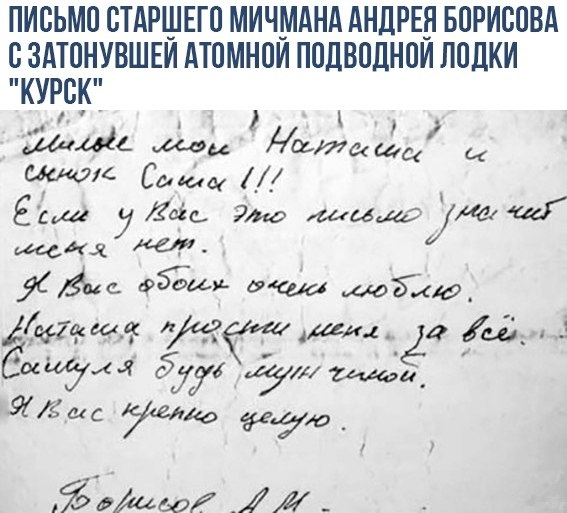 ПИСЬМО СТАРШЕГО МИЧМАНА АНДРЕЯ БОРИСОВА
С ЗАТОНУВШЕЙ АТОМНОЙ ПОДВОДНОЙ ЛОДКИ
"КУРСК"
Милые мои Наташа и
сынок Саша!!!
Если у Вас это письмо значит
меня нет.
Я Вас обоих очень люблю.
Наташа прости меня за всё.
Сашуля будь мужчиной.
Я Вас крепко целую.
Борисов А.М.